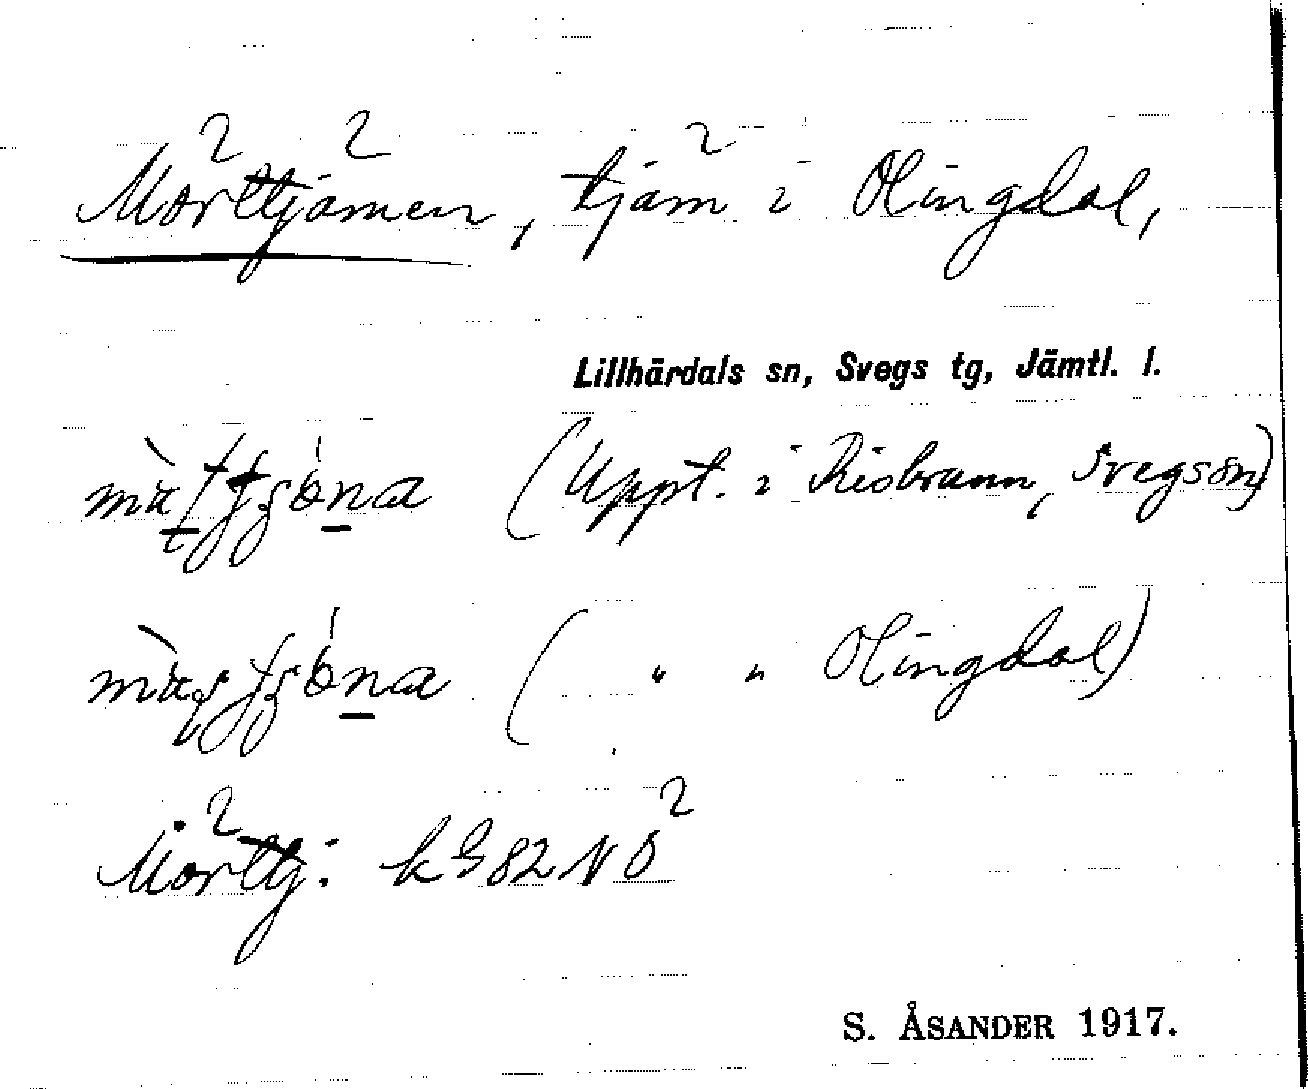 Mörttjärnen, tjärn i Olingdal,
Lillhärdals sn, Svegs tg, Jämtl. l.
(Uppt. i Risbrunn, Svegs sn)
( " " Olingdal)
Mörttj: k 82 NO
S. ÅSANDER 1917.